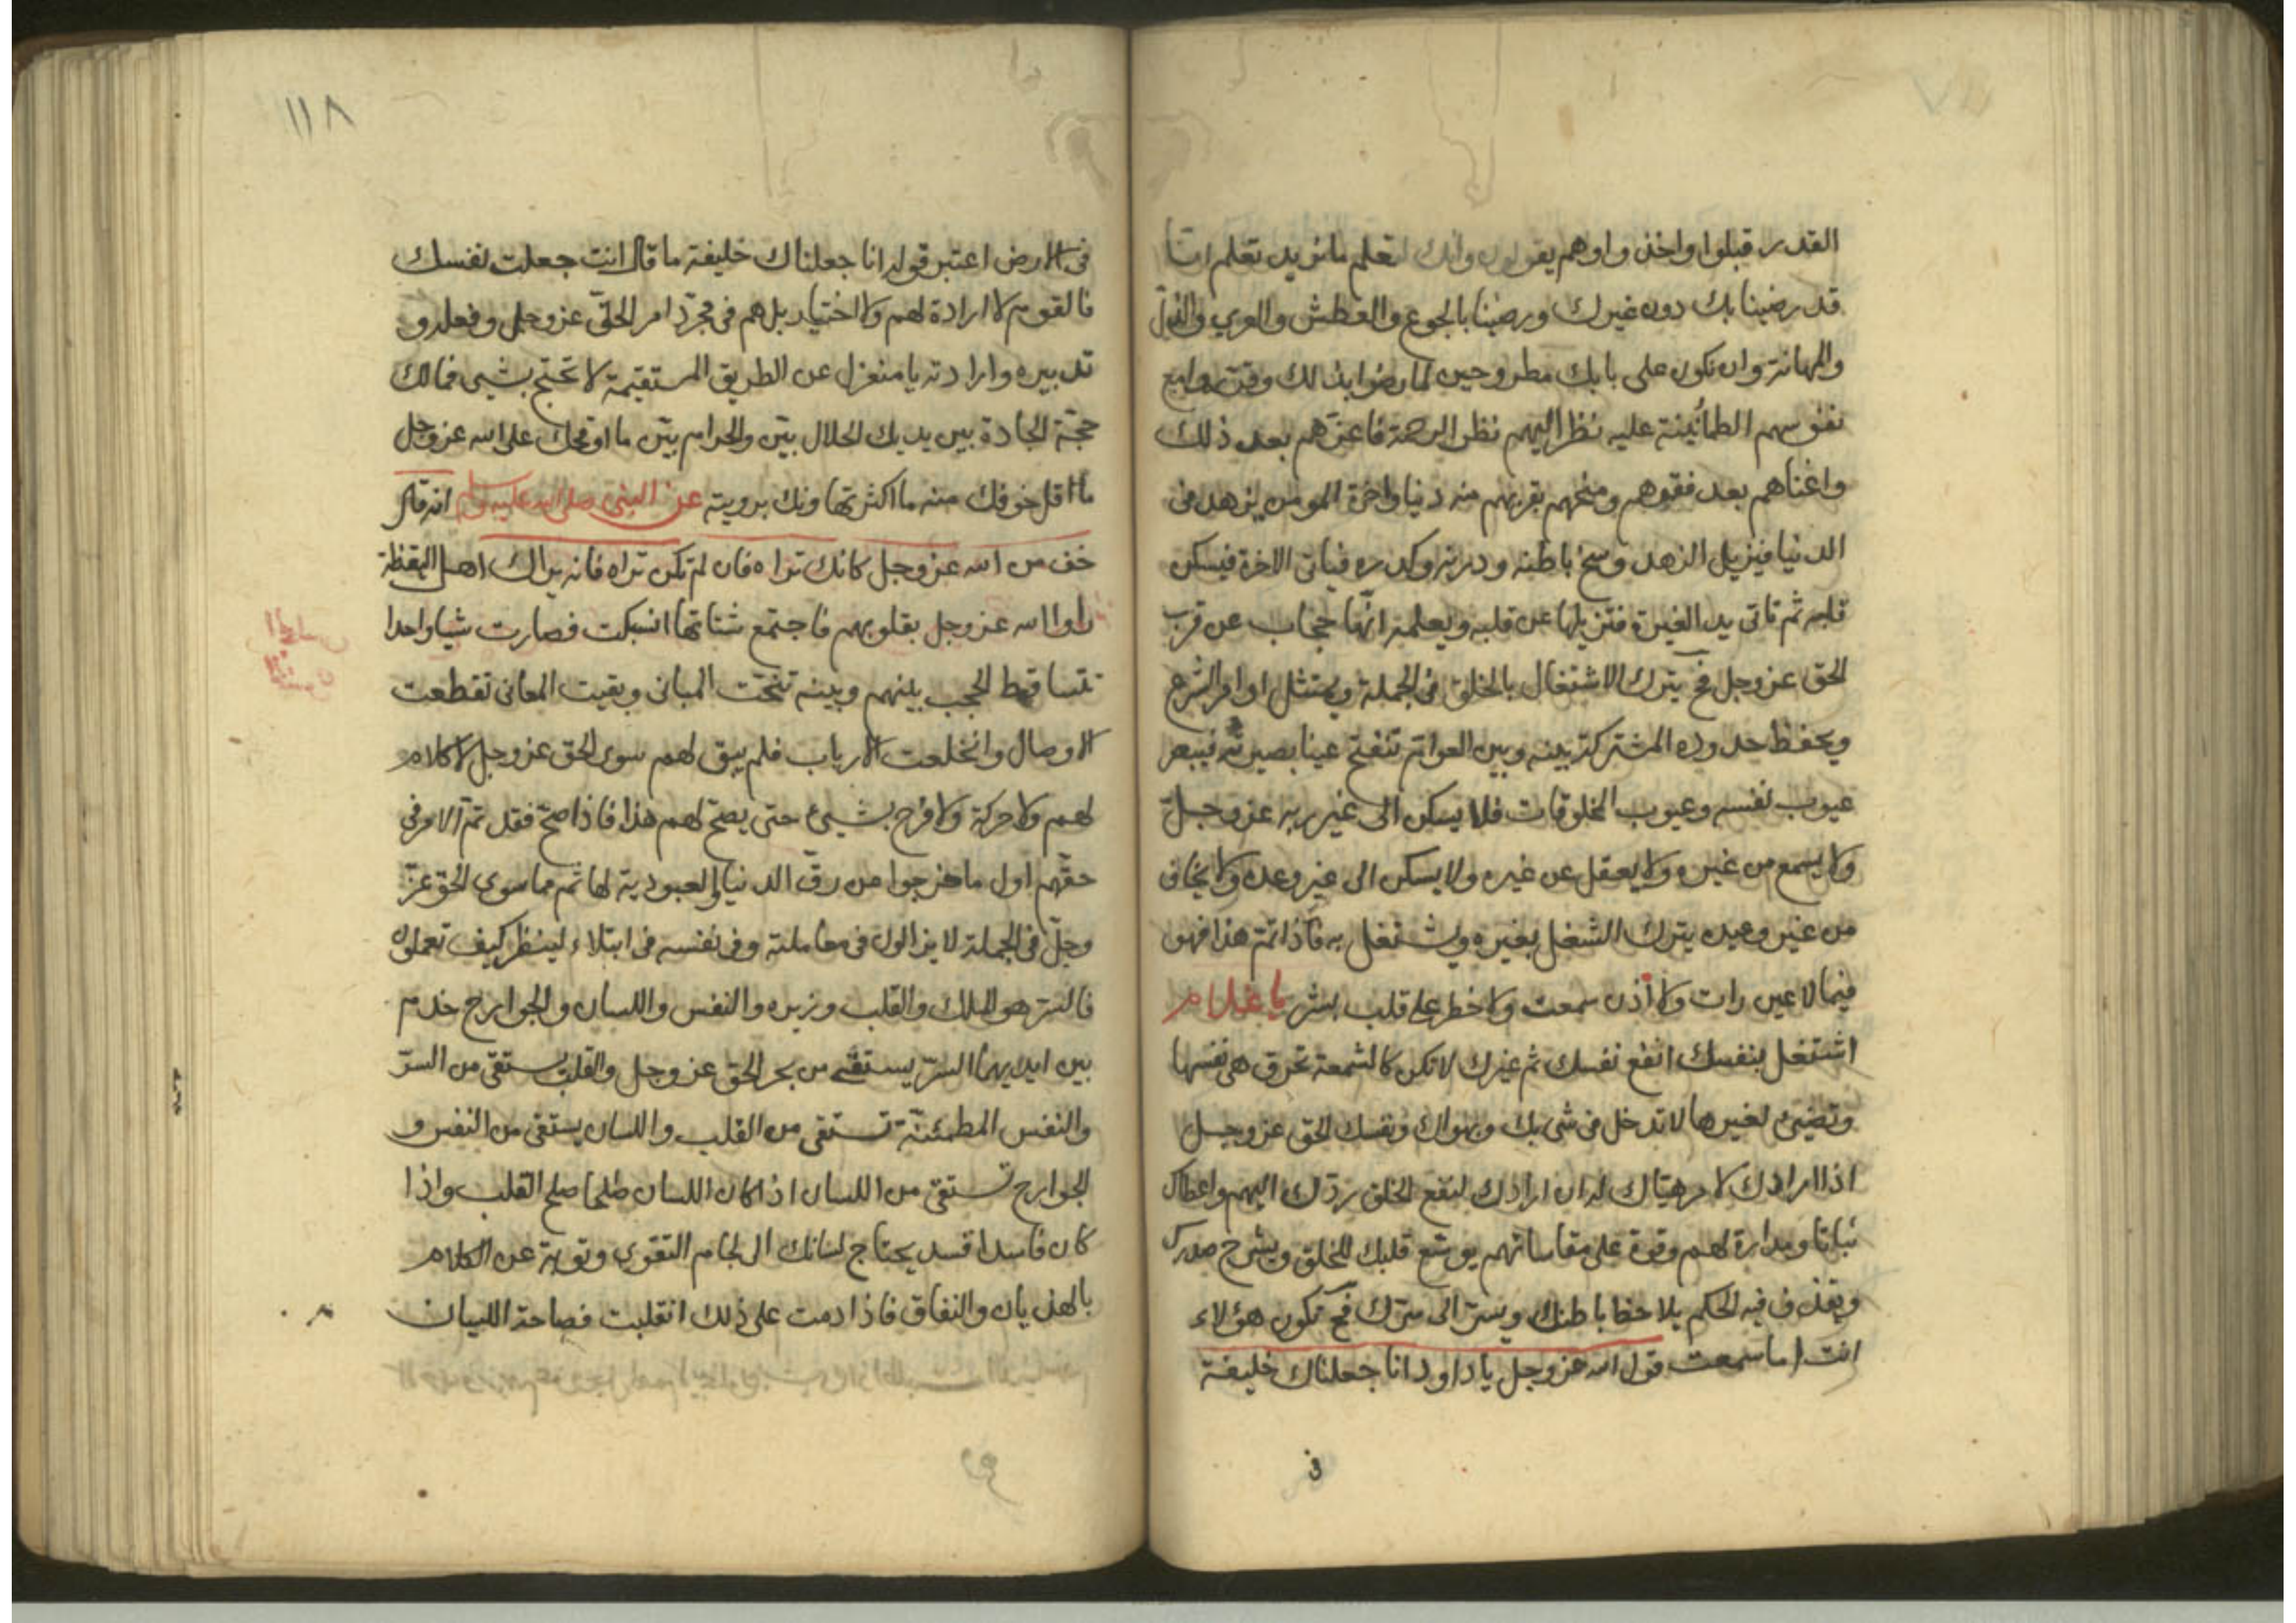 القدر قبلوا واخذوا وهم يقولون وانك لتعلم ما نريد تعلم اننا
قد رضينا بك دون غيرك ورضينا بالجوع والعطش والعري والذل
والمهانة وان نكون على بابك مطروحين لما رضوا بذلك وقرت
نفوسهم الطمأنينة عليه نظر اليهم نظر الرحمة فاعزهم بعد ذلك
واغناهم بعد فقرهم ومنحهم بقربهم منه دنيا واخرة المومن يزهد في
الدنيا فيزيل الزهد وسخ باطنه ودرنه وكدره فياتي الاخرة فيسكن
قلبه ثم تاتي يد الغيرة فتزيلها عن قلبه ويعلمه انها حجاب عن قرب
الحق عز وجل فح يترك الاشتغال بالخلق في الجملة ويمتثل اوامر الشرع
ويحفظ حدوده المشتركة بينه وبين العوام تنفتح عينا بصيرته فيبصر
عيوب نفسه وعيوب المخلوقات فلا يسكن الى غير ربه عز وجل
ولا يسمع من غيره ولا يعقل عن غيره ولا يسكن الى غير وعده ولا يخاف
من غير وعيده يترك الشغل بغيره ويشتغل به فاذا تم هذا فهو
فيما لا عين رات ولا أذن سمعت ولا خطر على قلب بشر يا غلام
اشتغل بنفسك انفع نفسك ثم غيرك لا تكن كالشمعة تحرق هي نفسها
وتضيئ لغيرها لا تدخل في شيء بك وبهواك ونفسك الحق عز وجل
اذا ارادك لامر هيأك له ان ارادك لنفع الخلق ردك اليهم واعطاك
ثباتا ومدارة لهم وقوة على مقاساتهم يوسع قلبك للخلق ويشرح صدرك
ويقذف فيه الحكم يلاحظ باطنك ويسر الى سرك فح تكون هؤلاء
انت اما سمعت قول الله عز وجل يا داود انا جعلناك خليفة
في
١١٨
في الارض اعتبر قوله انا جعلناك خليفة ما قال انت جعلت نفسك
فالقوم لا ارادة لهم ولا اختيار بل هم في مجرد امر الحق عز وجل وفعله و
تدبيره وارادته يا منعزل عن الطريق المستقيمة لا تحتج بشيى فمالك
حجة الجادة بين يديك الحلال بين والحرام بين ما اوقحك على الله عز وجل
ما اقل خوفك منه ما اكثر تهاونك برويته عن النبي صلى الله عليه وسلم انه قال
خف من الله عز وجل كانك تراه فان لم تكن تراه فانه يراك اهل اليقظة
راوا الله عز وجل بقلوبهم فاجتمع شتاتها انسبكت فصارت شيا واحدا
تتساقط الحجب بينهم وبينه تنحت المباني وبقيت المعاني تقطعت
الاوصال وانخلعت الارباب فلم يبق لهم سوى الحق عز وجل لا كلام
لهم ولا حركة ولا فرح بشيئ حتى يصح لهم هذا فاذا صح فقد تم الامر في
حقهم اول ما خرجوا من رق الدنيا والعبودية لها ثم مما سوى الحق عز
وجل في الجملة لا يزالون في معاملته وفي نفسه في ابتلاء لينظر كيف تعملون
فالسر هو الملك والقلب وزيره والنفس واللسان والجوارح خدم
بين ايديهما السر يستقى من بحر الحق عز وجل والقلب يستقى من السر
والنفس المطمئنة تستقى من القلب واللسان يستقى من النفس و
الجوارح تستقى من اللسان اذا كان اللسان صلحا صلح القلب واذا
كان فاسدا فسد يحتاج لسانك الى لجام التقوى وتوبة عن الكلام
بالهذيان والنفاق فاذا دمت على ذلك انقلبت فصاحة اللسان